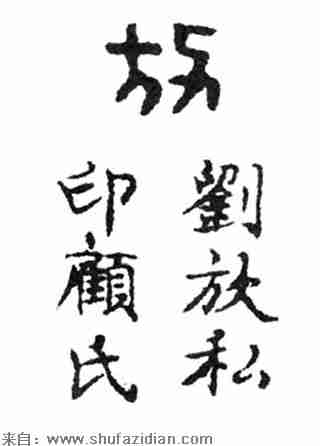 放
劉放私
印顧氏
来自：www.shufazidian.com